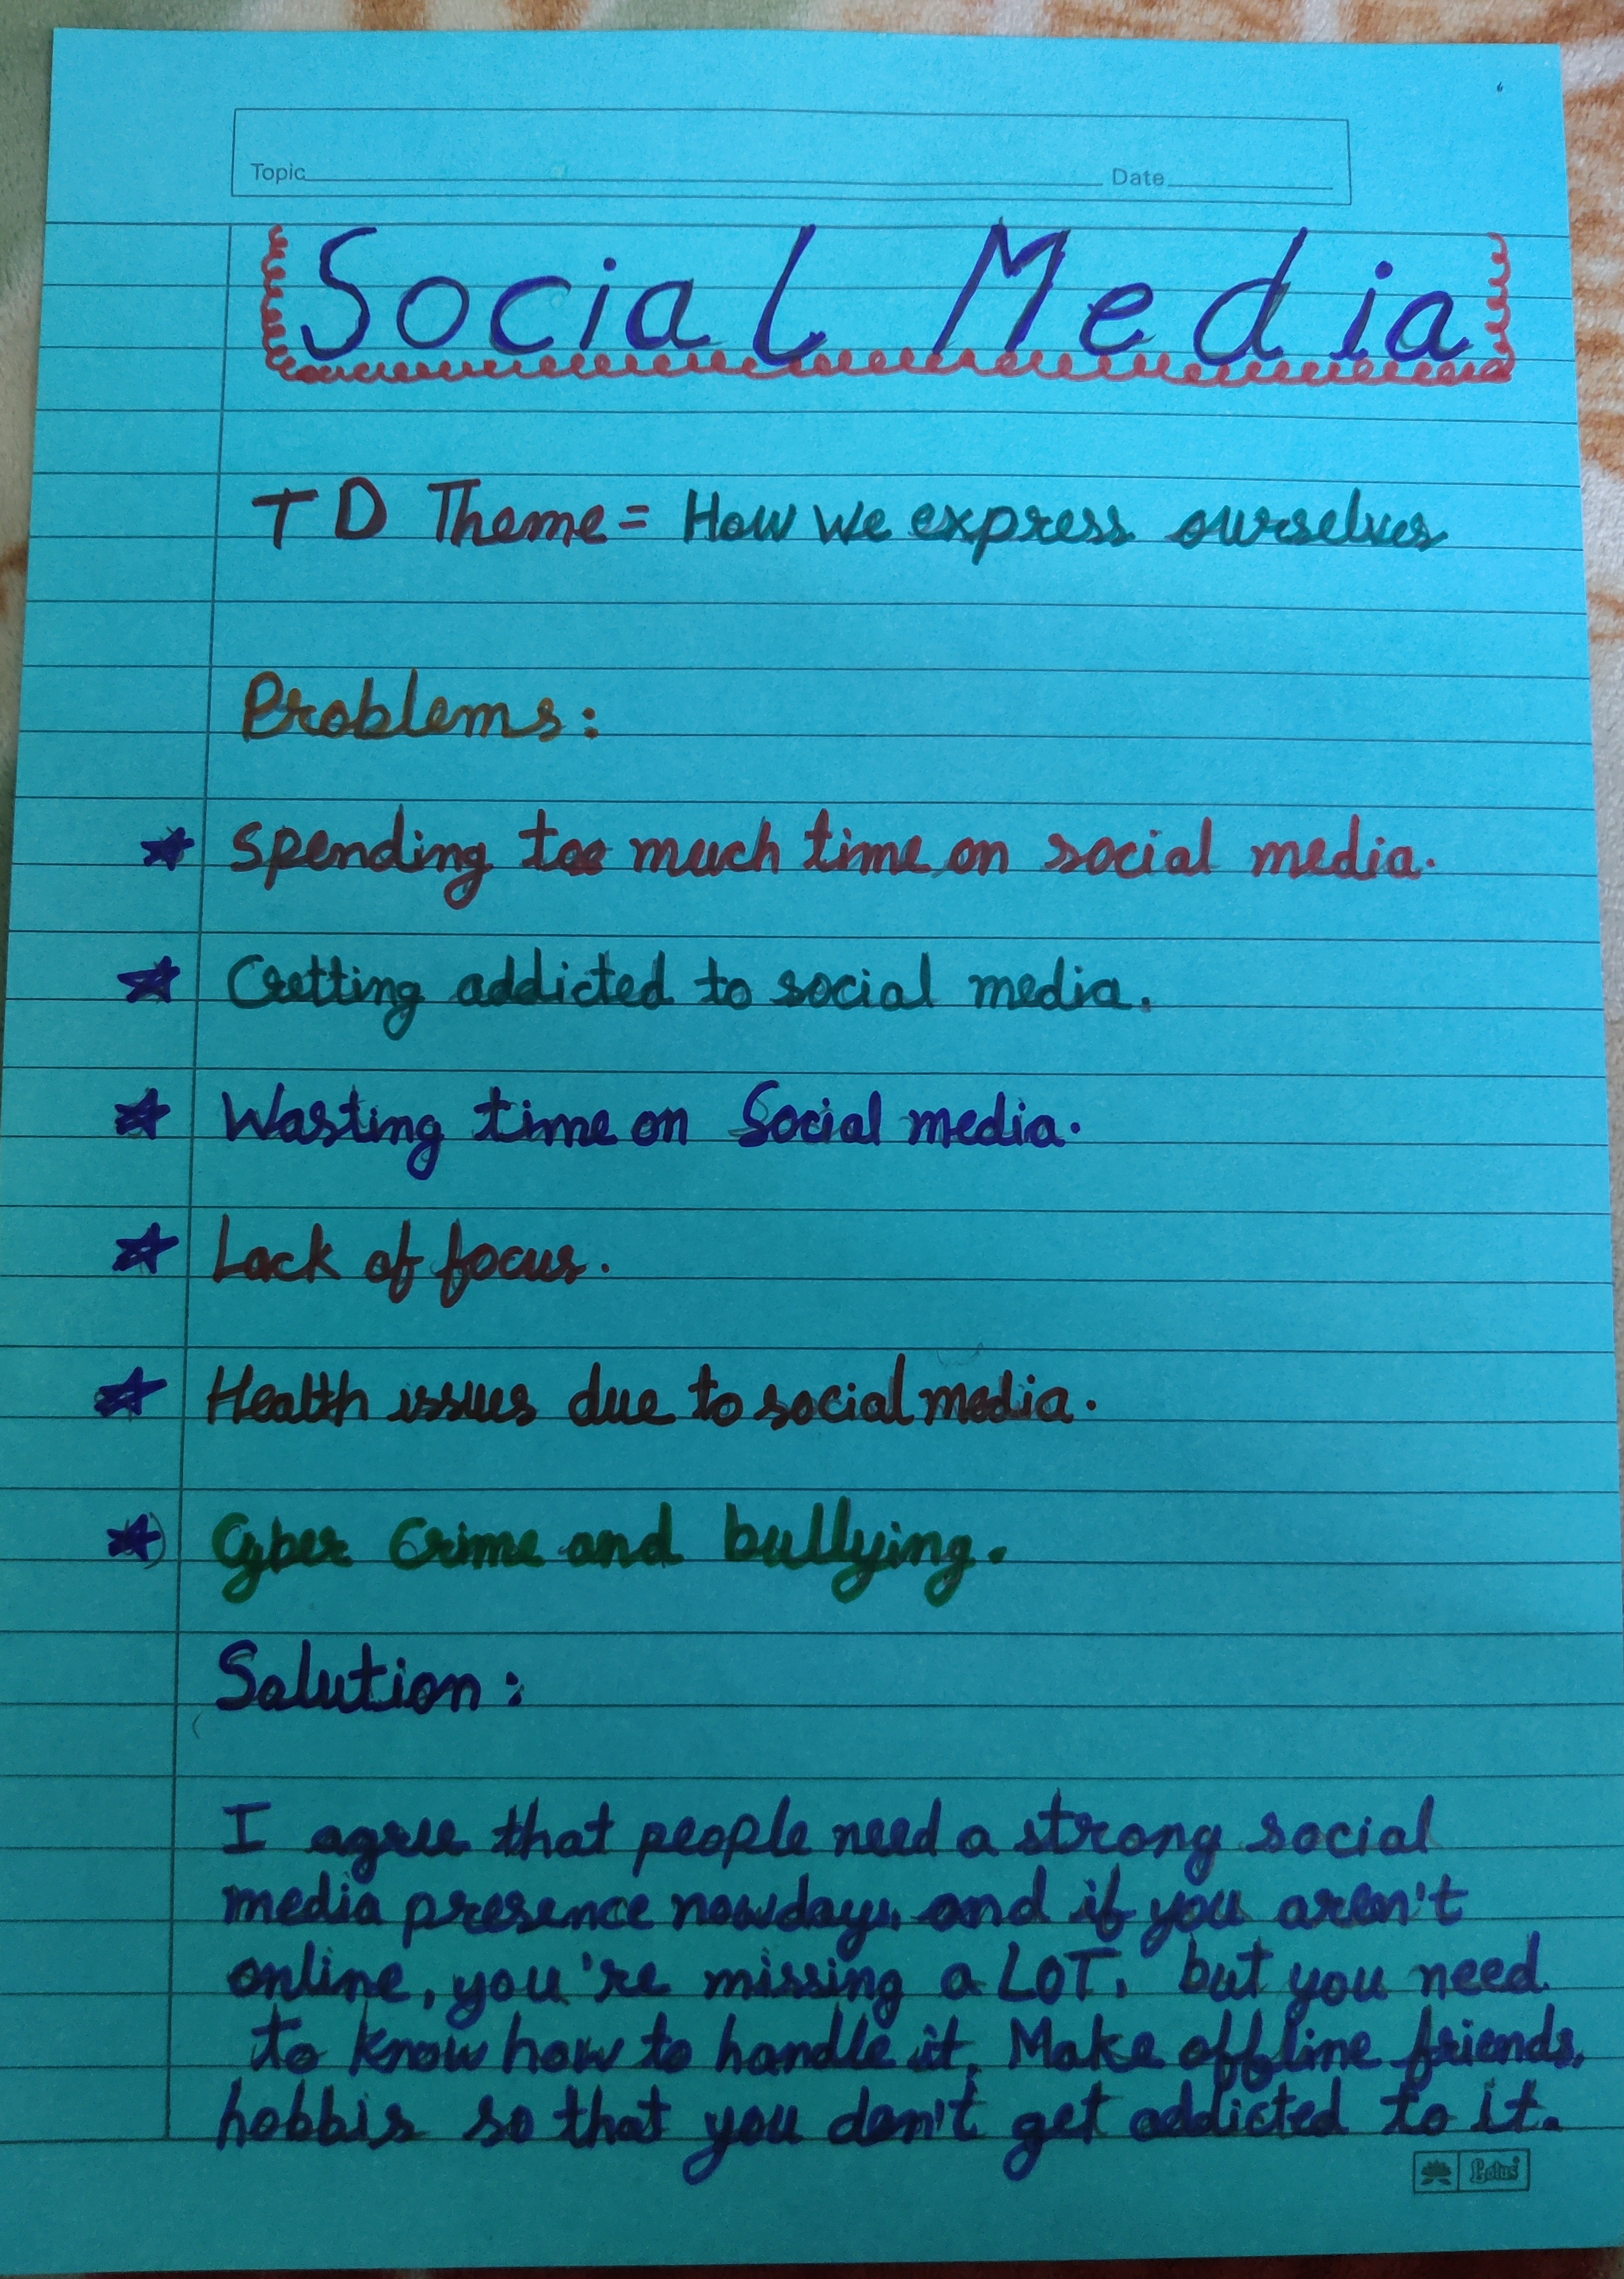 Topic Date
Social Media
TD Theme = How we express ourselves
Problems:
★ Spending too much time on social media.
★ Getting addicted to social media.
★ Wasting time on Social media.
★ Lack of focus.
★ Health issues due to social media.
★ Cyber Crime and bullying.
Solution:
I agree that people need a strong social
media presence nowdays, and if you aren't
online, you're missing a LOT, but you need
to know how to handle it. Make offline friends,
hobbis so that you don't get addicted to it.
Lotus